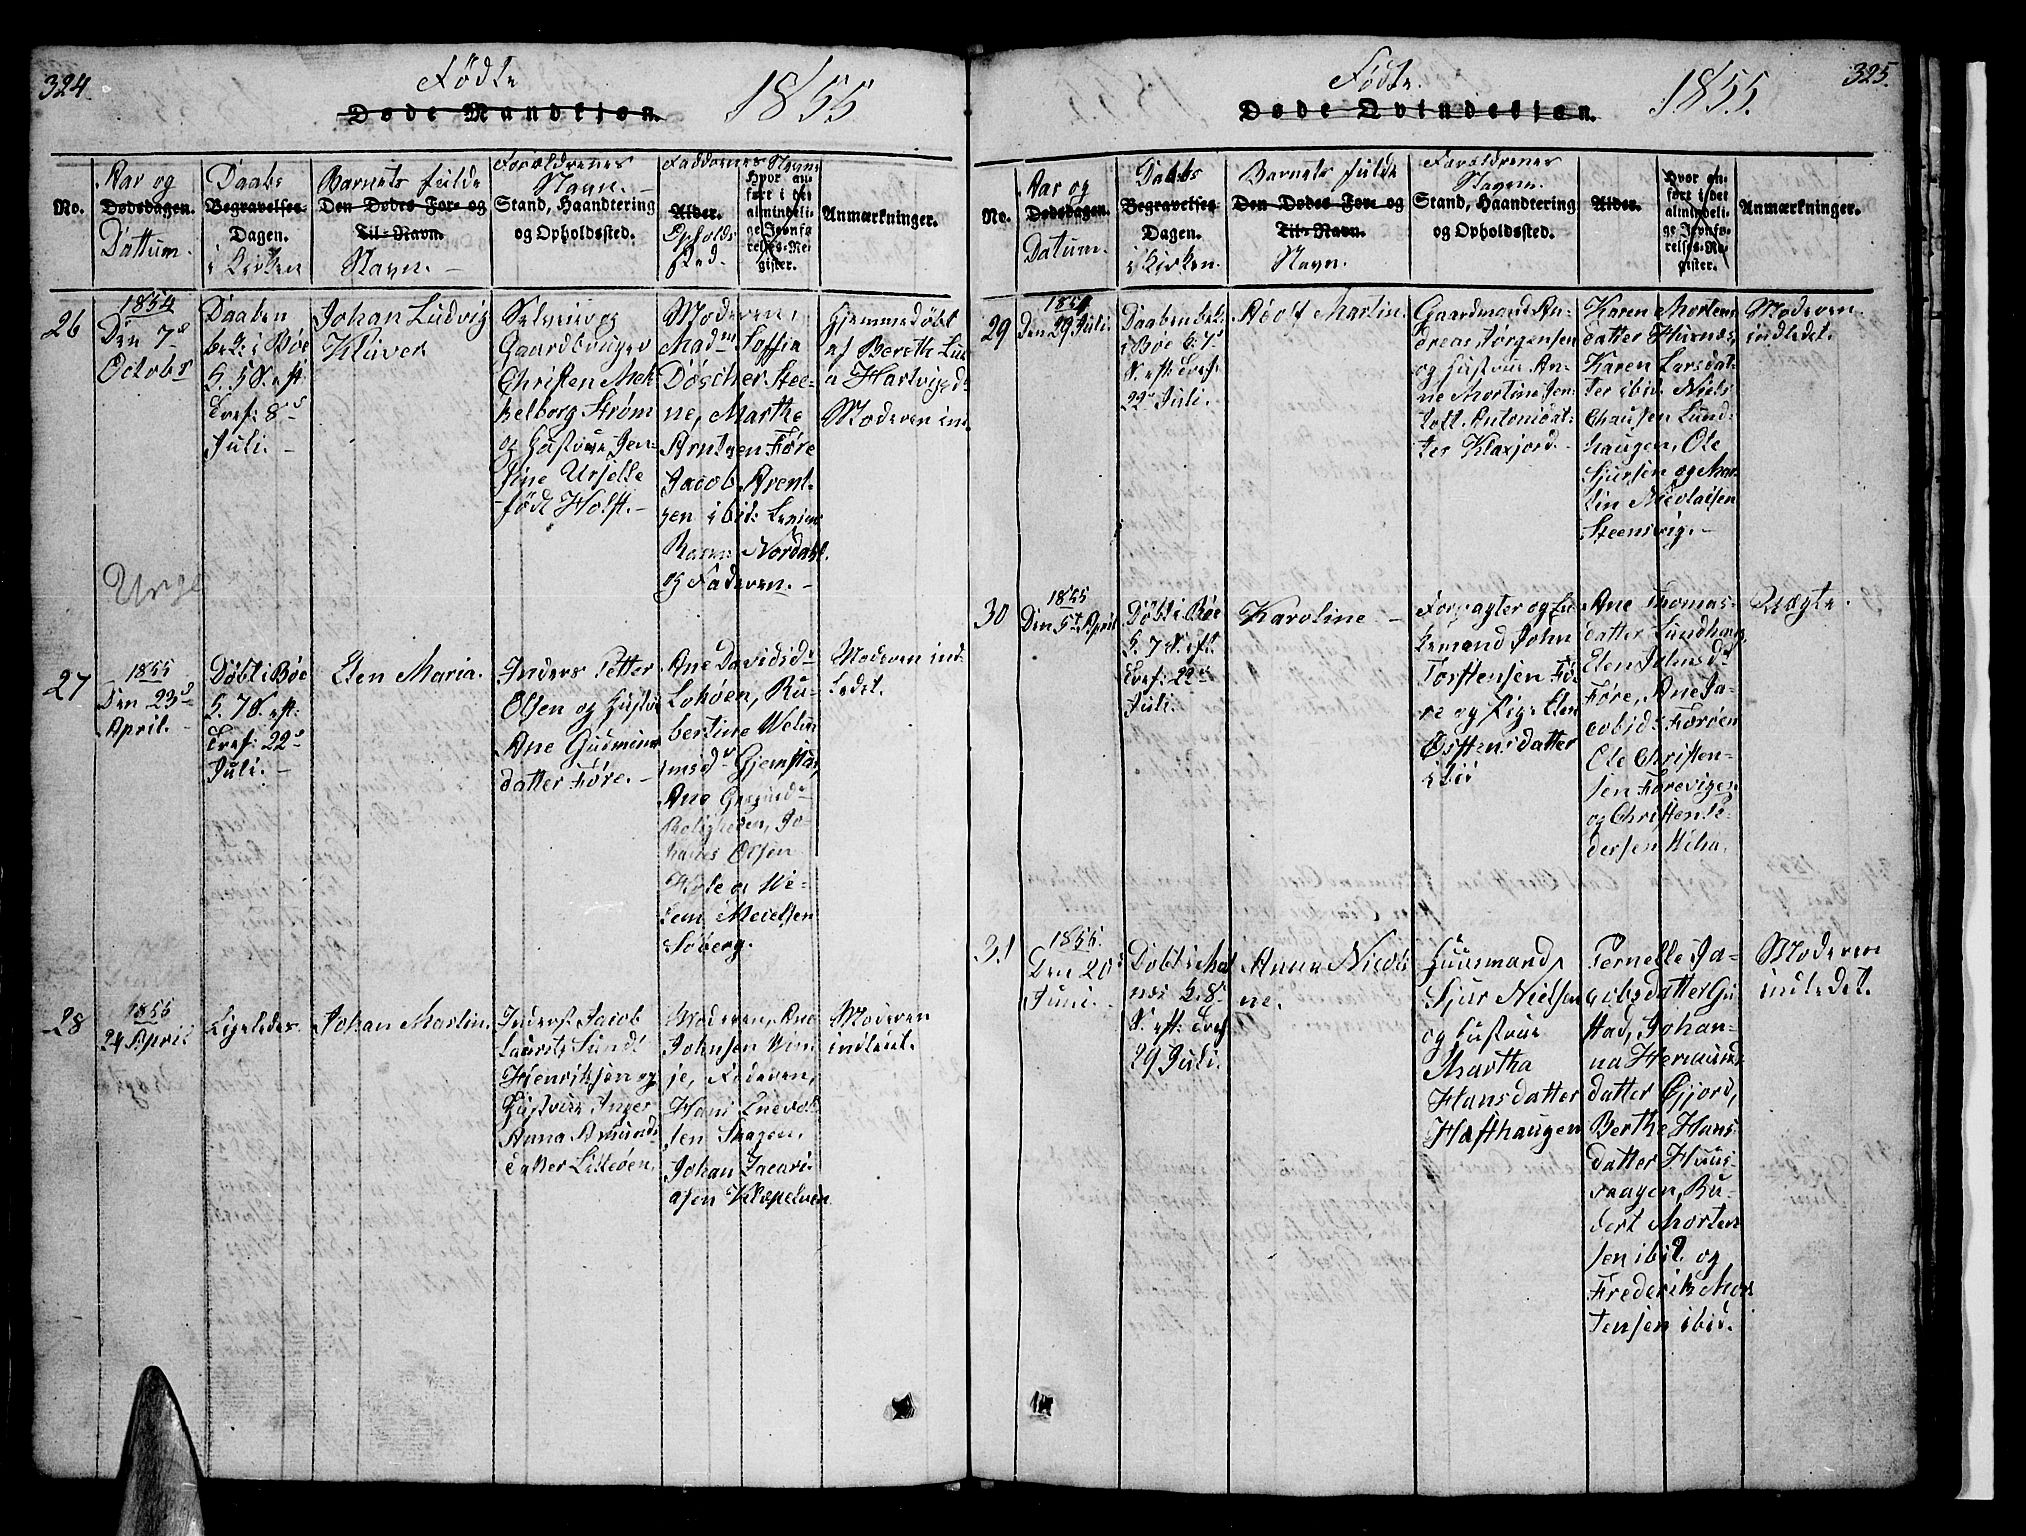 324.
Födte
Døde Mandkjøn.
1855
No.
Aar og
Dødsdagen.
Dattum.
Daabs
Begravelses-
Dagen.
i Kirken
Barnets fulde
Den Dødes For- og
Til-Navn.
Navn. -
Forældrenes
Navn. -
Stand, Haandtering
og Opholdssted.
Faddernes Navne
Alder.
Opholds
sted.
Hvor an-
ført i det
almindeli-
ge Jevnfø-
relses-Re-
gister.
Anmærkninger.
26
1854
Den 7de
Octobr
Daaben
bek: i Bøe
S. 5 S. eft.
Tref: 8de
Juli. -
Johan Ludvig
Klüver
Selveier og
Gaardbruger
Christen Mek
kelborg Strøm
og Hustrue Jen-
sine Urselle
født Holst. -
Moderen,
Madm Soffia
Döscher Stee-
ne, Marthe
Arntzen Føre
Jacob Arent-
zen ibid:
Nordahl
og Faderen. -
Hjemmedøbt
af Bereth Lu
a Hartvigsdr
Moderen ind
27
1855
Den 23de
April. -
Døbt i Bøe
S. 7 S. eft.
Tref: 22de
Juli. -
Elen Maria.
Inders Petter
Olsen og Hustru
Ane Gudmund
datter Føre. -
Ane Davidsdr
Lohøen, Ru-
bertine Welum
imsdr Gjemstad,
Ane
Roligheden, Jo-
hanes Olsen
og We-
lem Meielsen
Søberg.
Moderen ind-
ledet.
28
1855
24 April
Ligeledes
Johan Martin.
Inderst Jacob
Lauritz Sund
Henriksen og
Hustrue Inger
Anna Amunds
datter Litleøen.
Moderen, Ane
Johnsen Vin-
je, Faderen,
Hans Enevol
sen Skagen,
Johan Zacari-
asen Klæpelven
Moderen
indledt.
325.
Fødte.
Døde Qvindekjøn.
1855.
No.
Aar og
Dødsdagen.
Datum.
Daabs
Begravelses-
Dagen.
i Kirken.
Barnets fulde
Den Dødes For- og
Til-Navn.
Navn.
Forældrenes
Navn.
Stand, Haandtering
og Opholdssted.
Alder.
Hvor an-
ført i det
almindeli-
ge Jevnfø-
relses-Re-
gister.
Anmærkninger.
29
1854
Den 29 Juli.
Daaben bek.
i Bøe S. 7de
S. eft. Tref.
22de Juli.
Adolf Martin.
Gaardmand An-
dreas Jørgensen
og Hustrue An-
ne Mortine Jen-
toft Antonidat-
ter Klaxjord. -
Karen Mortens
datter Hurnes,
Karen Larsdat-
ter ibid. Niels
Chausen Lund-
haugen, Ole
Sjursen og Mar-
tin Nicolaisen
Steensvig. -
Moderen
indledet.
30
1855
Den 5te April
Døbt i Bøe
S. 7 S. eft.
Tref: 22de
Juli.
Karoline -
Forpagter og
John
Torstensen Fø-
re og Pige Elen
Østensdatter
ibid
Ane Thomas-
datter Lundhaug
Elen Johnsdr
Føre, Ane Ja-
cobidr Færøen
Ole Christen-
sen Førevigen
og Christen Pe-
dersen Weha.
Uægte.
31
1855.
Den 20de
Juni. -
Døbt i Mal
næs S. 8de
S. eft: Tref
29 Juli.
Anna Nicoli
ne.
Huusmand
Sjur Nielsen
og Hustrue
Martha
Hansdatter
Hafthaugen
Pernelle Ja-
cobsdatter Gu
stad, Johan-
na Hermunds
datter Gjord,
Berthe Hans
datter Huus-
vaagen, Ru-
dert Morten
sen ibid. og
Frederik Mor
tensen ibid.
Moderen
indledet.